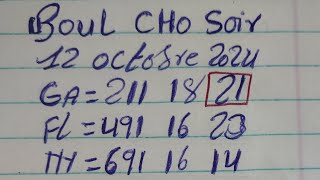 Boul CHO Soir
12 octobre 2024
GA = 211 18 21
FL = 491 16 20
NY = 691 16 14